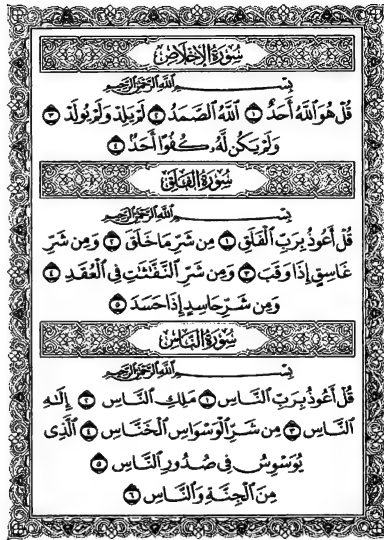 سُورَةُ الإِخْلَاصِ
بِسْمِ اللَّهِ الرَّحْمَٰنِ الرَّحِيمِ
قُلْ هُوَ اللَّهُ أَحَدٌ ١ اللَّهُ الصَّمَدُ ٢ لَمْ يَلِدْ وَلَمْ يُولَدْ ٣
وَلَمْ يَكُن لَّهُۥ كُفُوًا أَحَدٌ ٤
سُورَةُ الفَلَقِ
بِسْمِ اللَّهِ الرَّحْمَٰنِ الرَّحِيمِ
قُلْ أَعُوذُ بِرَبِّ الْفَلَقِ ١ مِن شَرِّ مَا خَلَقَ ٢ وَمِن شَرِّ
غَاسِقٍ إِذَا وَقَبَ ٣ وَمِن شَرِّ النَّفَّٰثَٰتِ فِي الْعُقَدِ ٤
وَمِن شَرِّ حَاسِدٍ إِذَا حَسَدَ ٥
سُورَةُ النَّاسِ
بِسْمِ اللَّهِ الرَّحْمَٰنِ الرَّحِيمِ
قُلْ أَعُوذُ بِرَبِّ النَّاسِ ١ مَلِكِ النَّاسِ ٢ إِلَٰهِ
النَّاسِ ٣ مِن شَرِّ الْوَسْوَاسِ الْخَنَّاسِ ٤ الَّذِي
يُوَسْوِسُ فِي صُدُورِ النَّاسِ ٥
مِنَ الْجِنَّةِ وَالنَّاسِ ٦